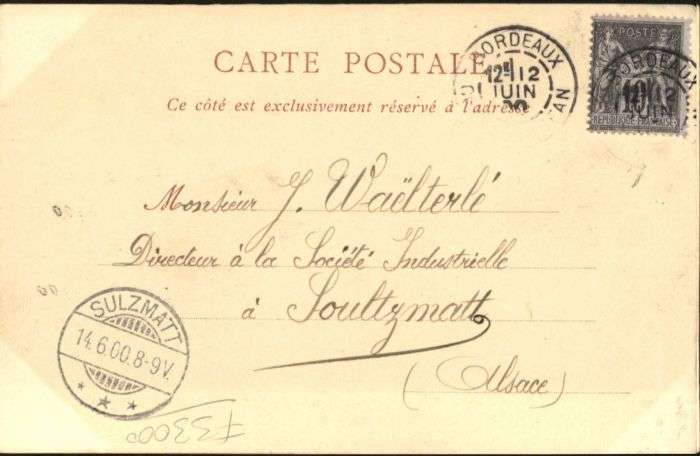 CARTE POSTALE
Ce côté est exclusivement réservé à l'adresse
BORDEAUX
12 12
JUIN
POSTE
BORDEAUX
10
REPUBLIQUE FRANCAISE
Monsieur J. Waëlterlé
Directeur à la Société Industrielle
à Soultzmatt
(Alsace)
SULZMATT
14.6.00.8-9V.